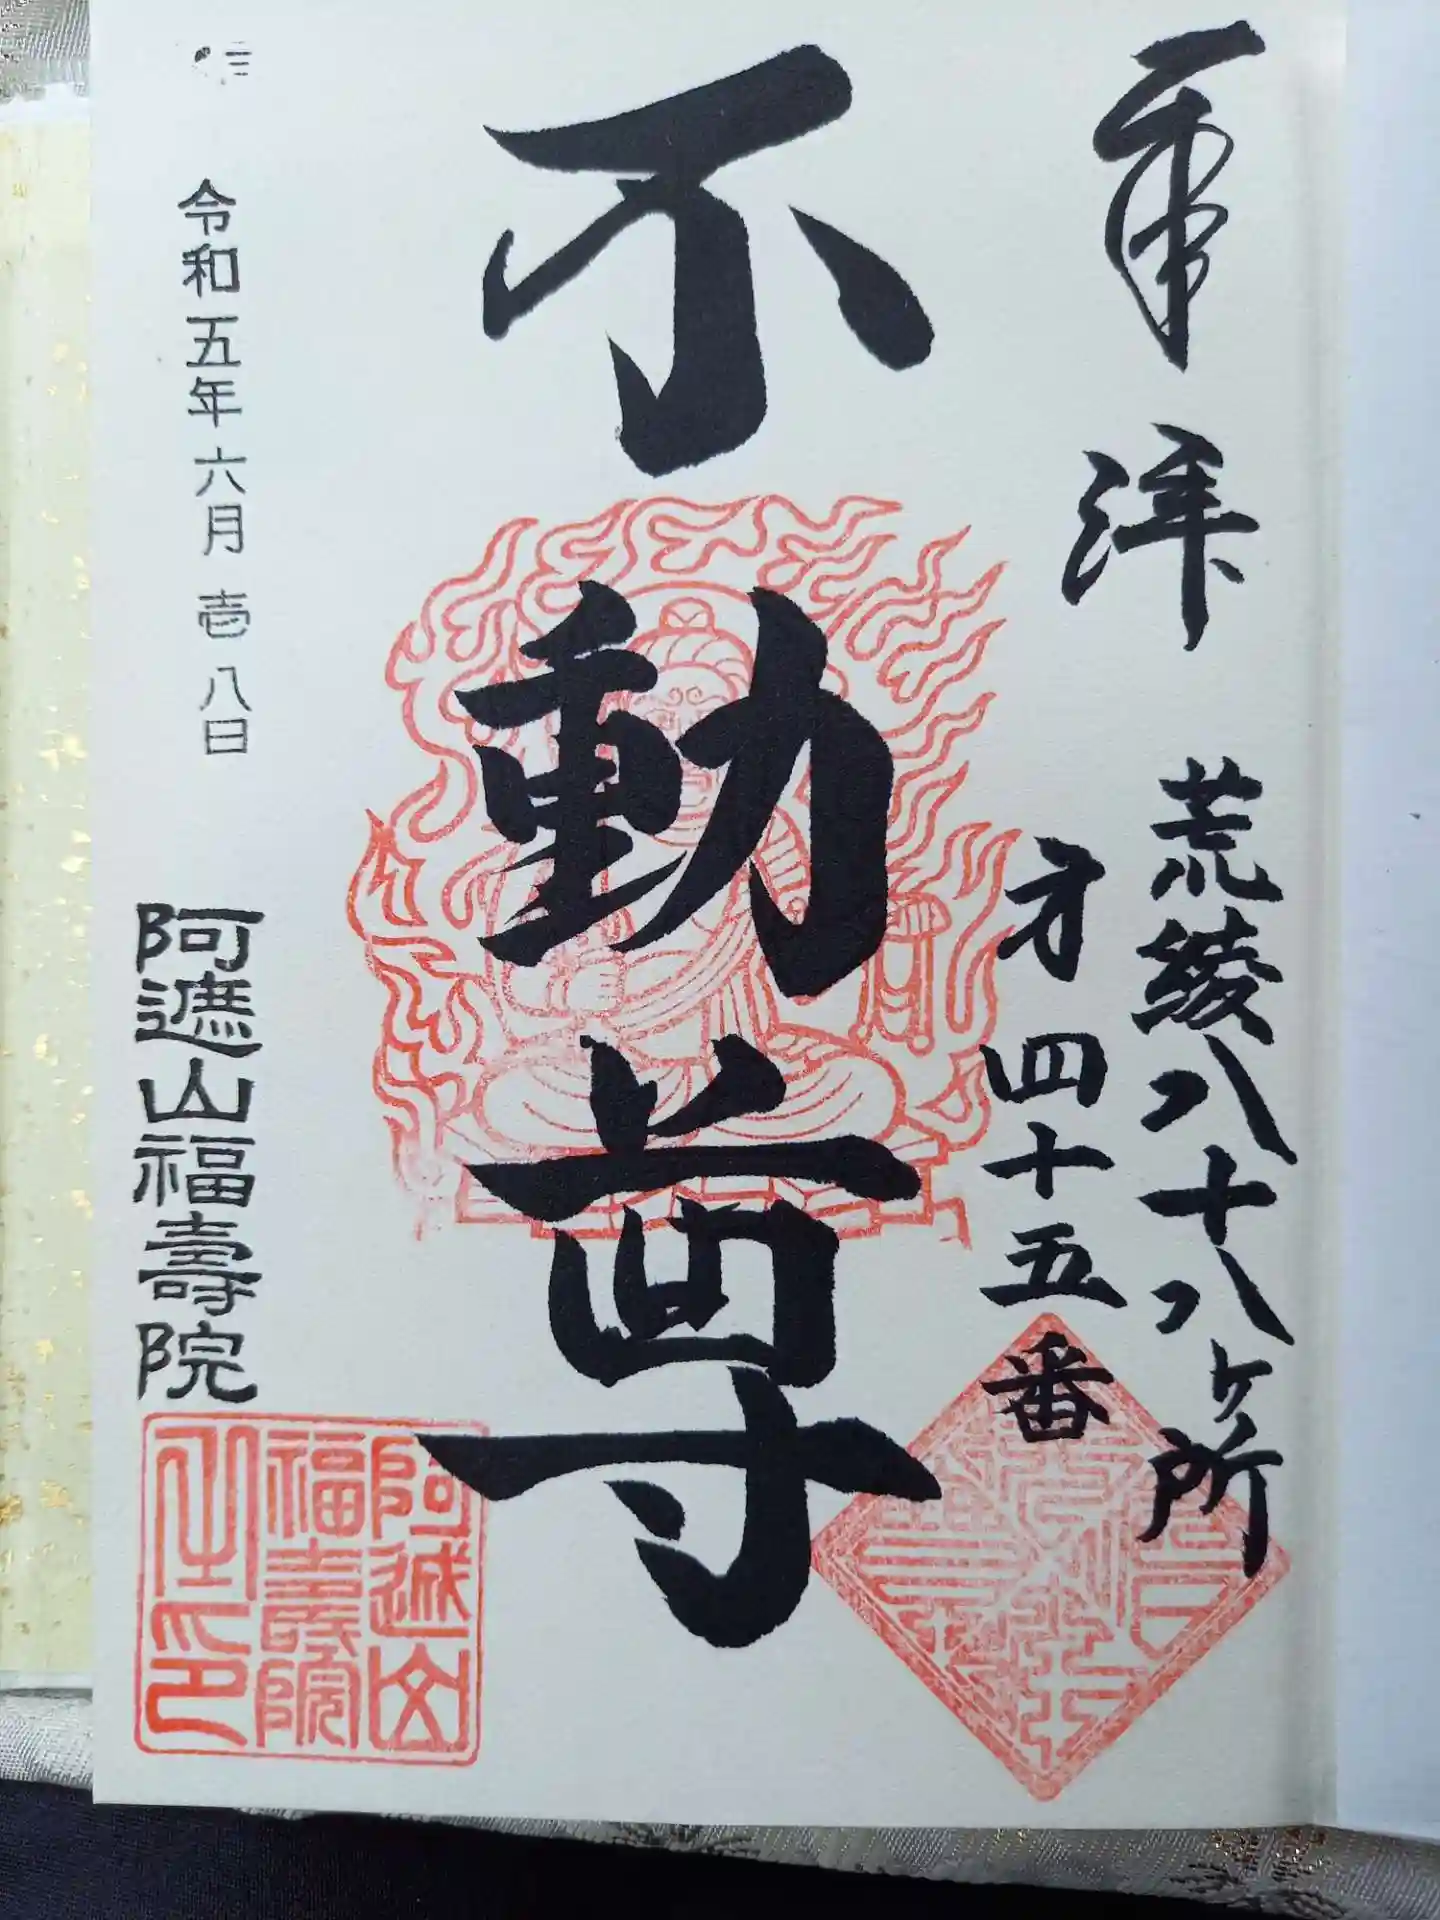 奉拝
荒綾八十八ヶ所
才四十五番
不動尊
令和五年六月壱八日
阿遮山福壽院
阿遮山
福壽院
之印